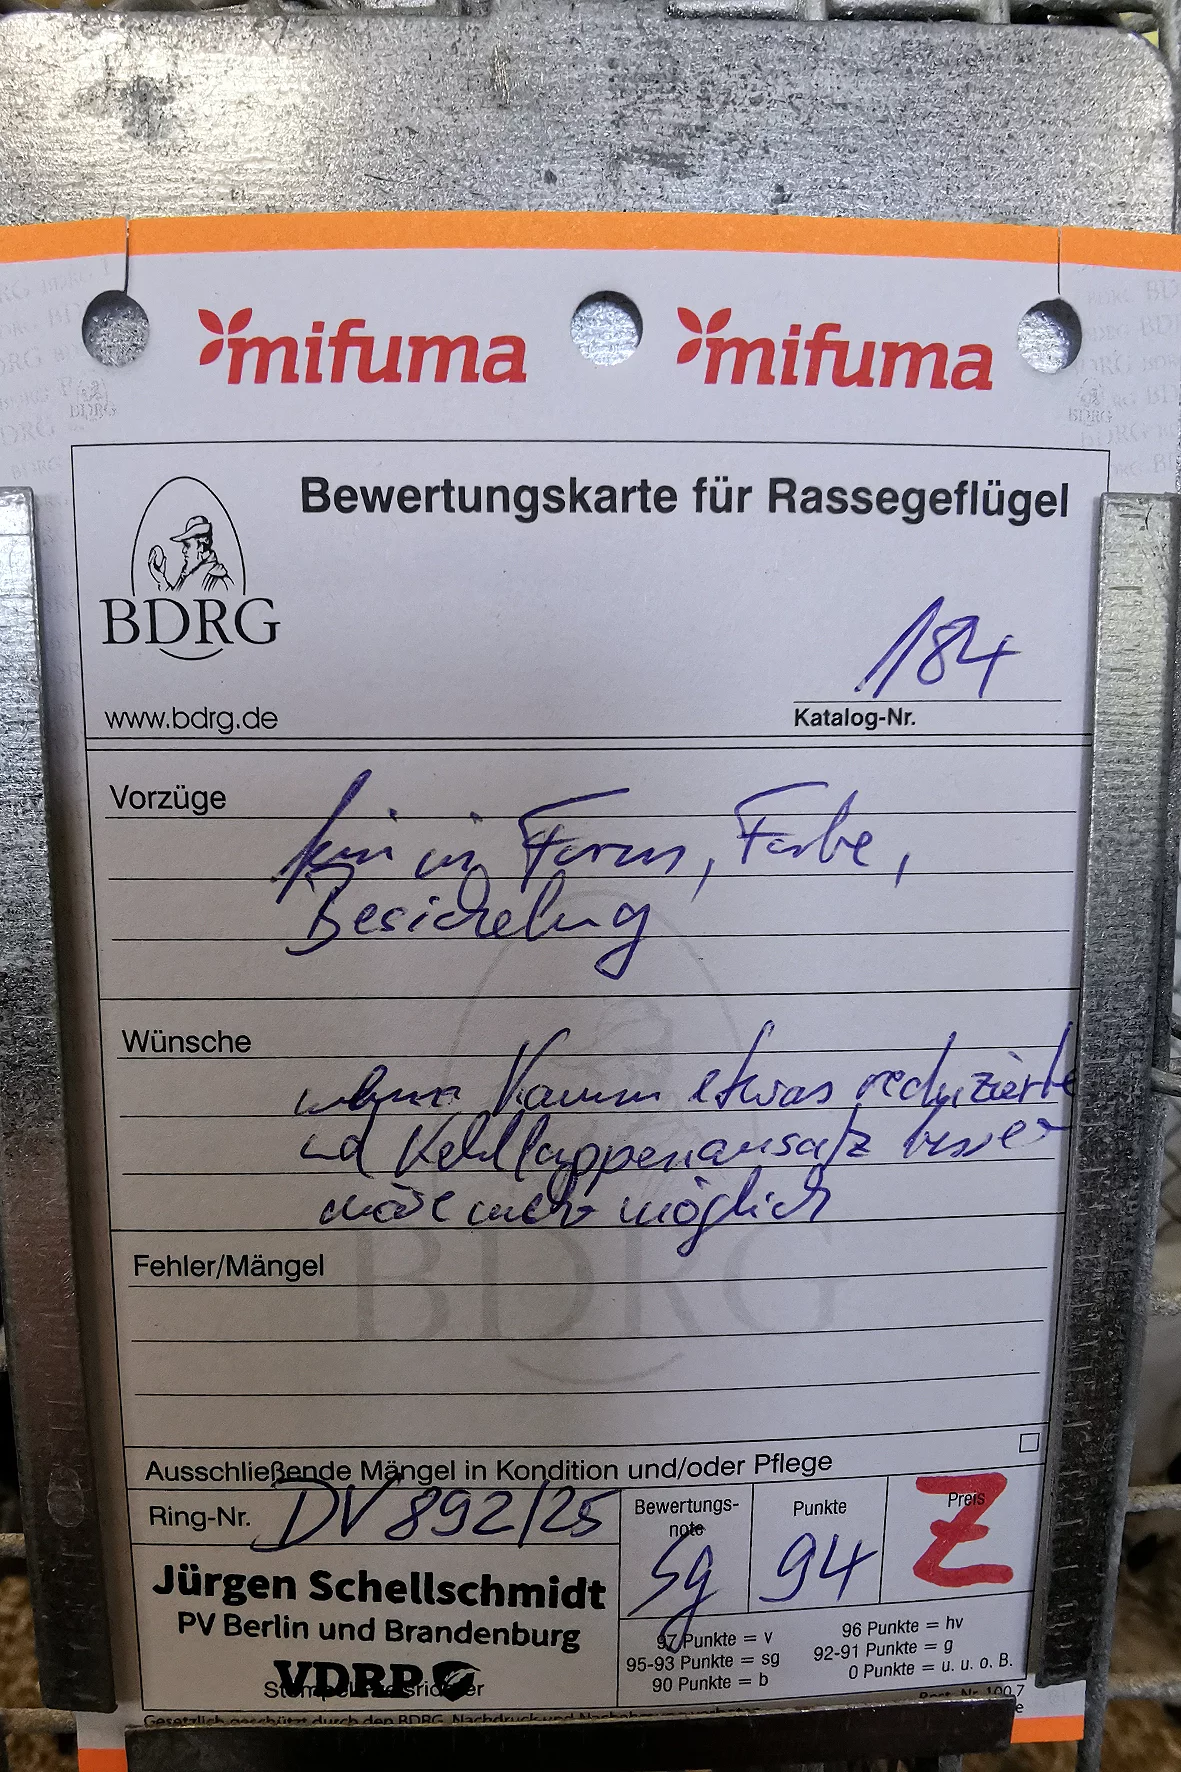 mifuma mifuma
Bewertungskarte für Rassegeflügel
BDRG
www.bdrg.de
184
Katalog-Nr.
Vorzüge
fein in Form, Farbe,
Besichelung
Wünsche
wenn Kamm etwas reduzierte
und Kehllappenansatz besser
wäre mehr möglich
BDRG
Fehler/Mängel
Ausschließende Mängel in Kondition und/oder Pflege
Ring-Nr. DV 892/25
Bewertungs-
note
sg
Punkte
94
Preis
Z
Jürgen Schellschmidt
PV Berlin und Brandenburg
VDRP
97 Punkte = v
95-93 Punkte = sg
90 Punkte = b
96 Punkte = hv
92-91 Punkte = g
0 Punkte = u. u. o. B.
Gesetzlich geschützt durch den BDRG, Nachdruck und Nachahmung